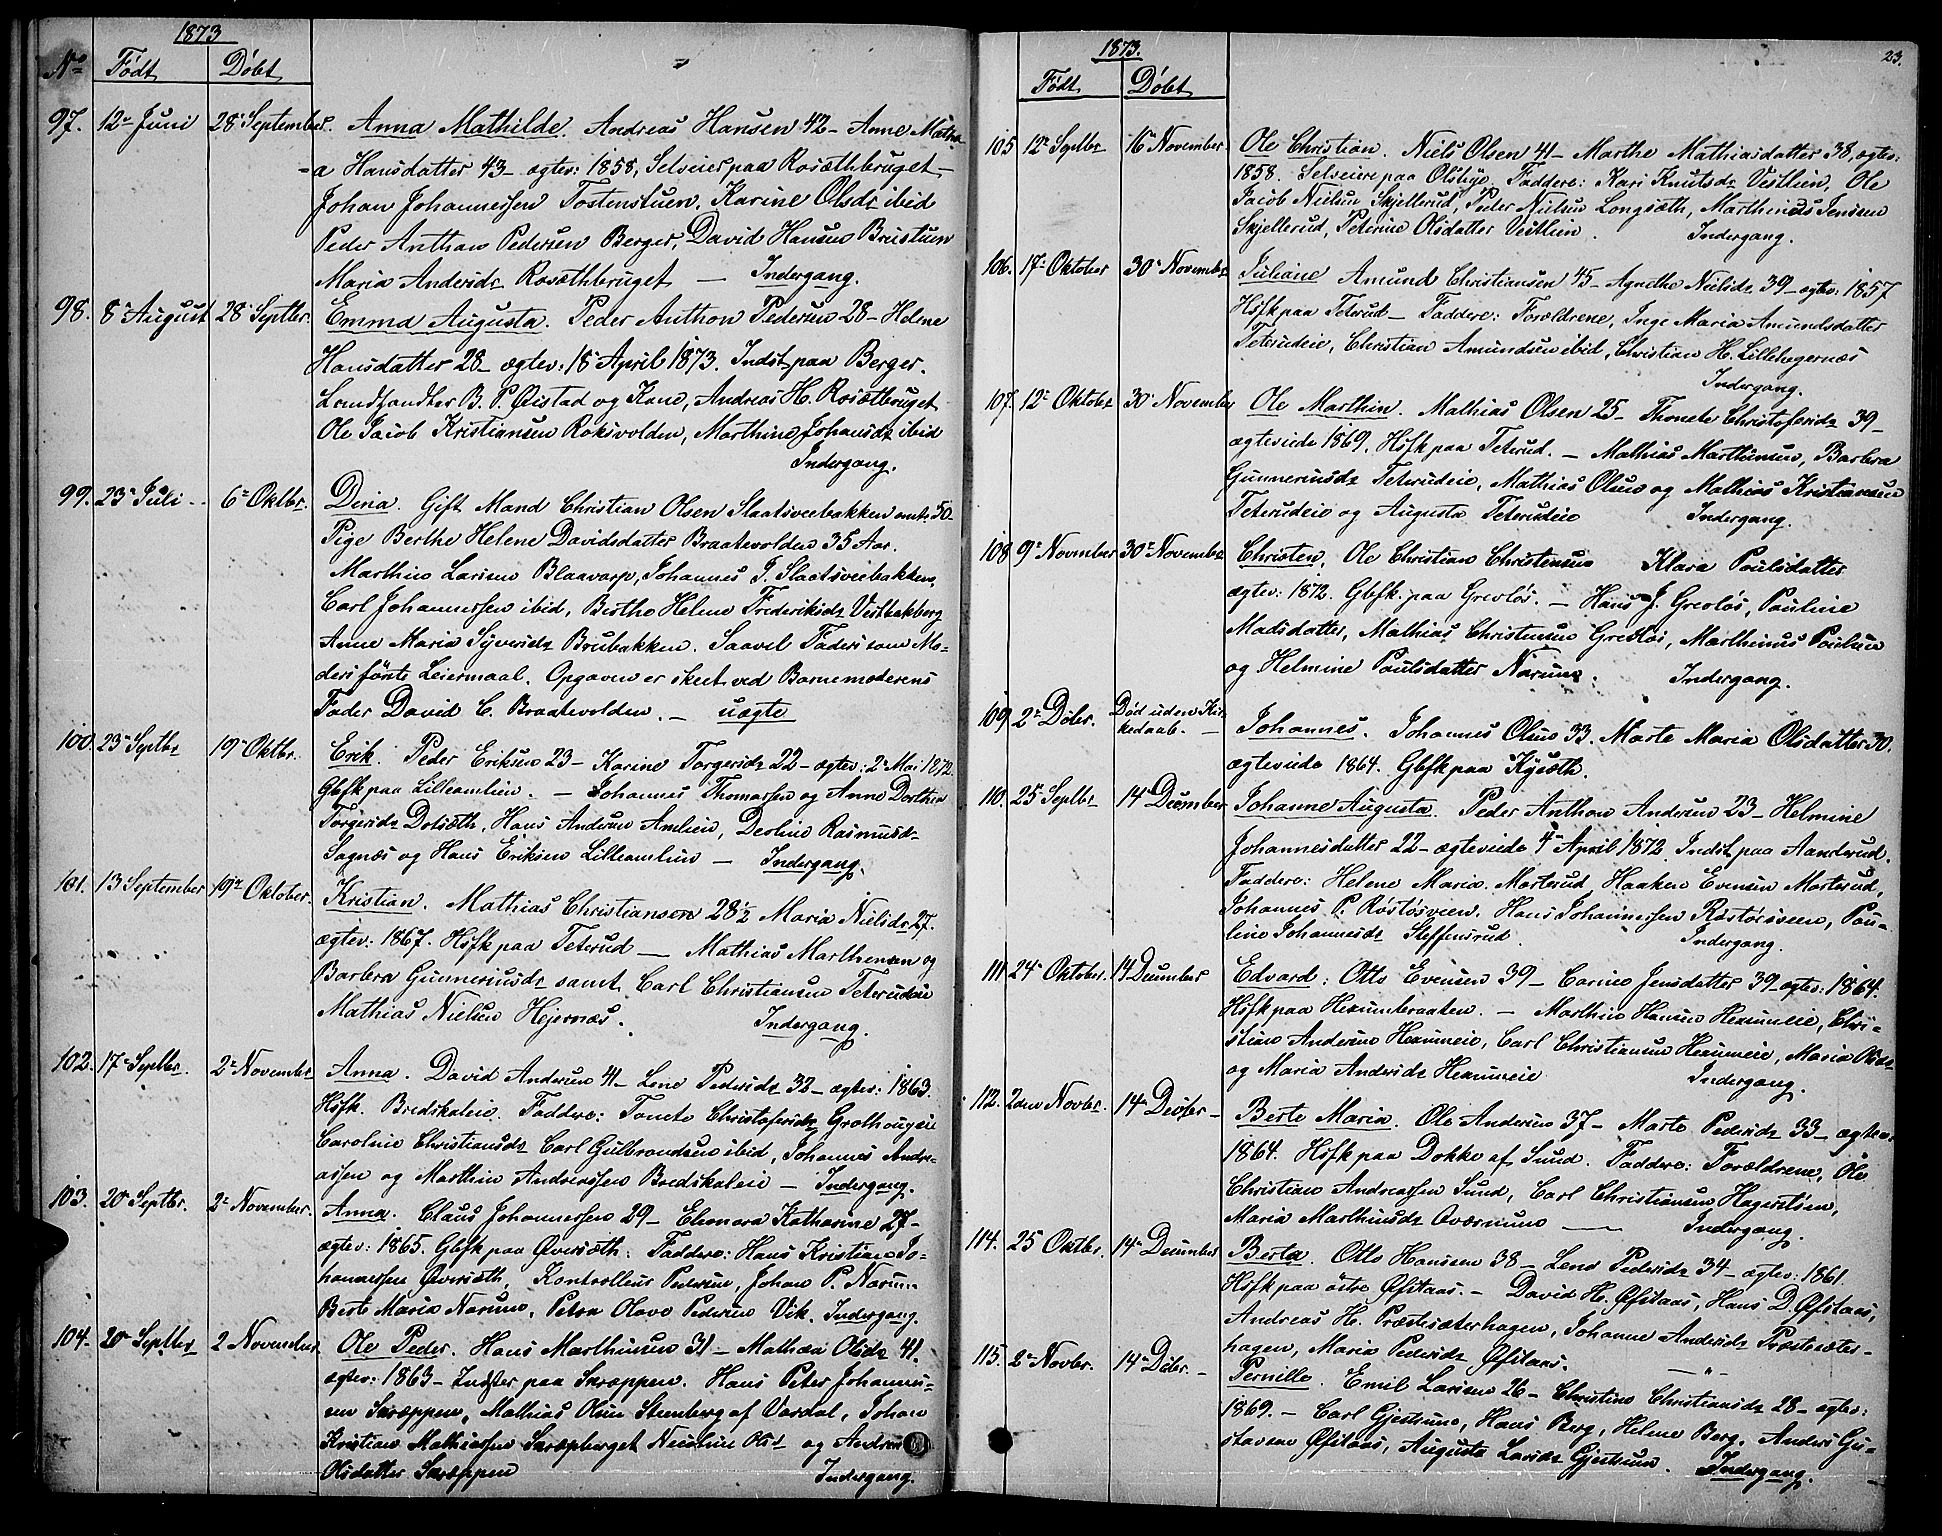 1873
No Født Døbt
97. 12te Juni 28de September. Anna Mathilde. Andreas Hansen 42 - Anne
a Hansdatter 43 - ægtev: 1858, Selveier paa Rosæthbruget -
Johan Johannessen Tostenstuen, Karine Olsdr ibid
Peder Anthon Pedersen Berger, David Hansen Bristuen
Maria Andersdr Rosæthbruget — Indergang.
98. 8de August 28de Septber. Emma Augusta. Peder Anthon Pedersen 28 - Helene
Hansdatter 28 - ægtev: 18de April 1873. Indst paa Berger.
Landhandler B. P. Øistad og Kone, Andreas H. Rosætbruget
Ole Jacob Kristiansen Roksvolden, Marthine Johansdr ibid
Indergang.
99. 23de Juli - - 6te Oktbr. Dina. Gift Mand Christian Olsen Slaatsveebakken omtr. 50
Pige Berthe Helene Davidsdatter Braatevolden 35 Aar.
Marthin Larsen Blaavarp, Johannes J. Slaatsveebakken,
Carl Johannessen ibid, Berthe Helene Frederiksdr Vestbakberg
Anne Maria Syversdr Brubakken. Saavel Faders som Mo-
ders første Leiermaal. Opgaven er skeet ved Barnemoderens
Fader David C. Braatevolden. — uægte
100. 23de Septbr 19de Oktbr. Erik. Peder Eriksen 23 - Karine Torgersdr 22 - ægtev: 2de Mai 1872.
Gbfk paa Lilleamlien. — Johannes Thomassen og Anne Dorthea
Torgersdr Dotsæth, Hans Andersen Amlien, Dortine Rasmusdr
Sognæs og Hans Eriksen Lilleamlien — Indergang.
101. 13 September 19de Oktober. Kristian. Mathias Christiansen 28½ Maria Nielsdr 27.
ægtev: 1867. Hsfk paa Teterud — Mathias Marthensen og
Barbra Gunneriusdr samt Carl Christiansen Teterudeie
Mathias Nielsen Hejernæs. Indergang.
102. 17de Septbr. 2de November Anna. David Andersen 41 - Lene Pedersdr 32 - ægtev: 1863.
Hsfk. Bredskaleie. Faddere: Tonete Christofersdr Grothougseie
Caroline Christiansdr Carl Gulbrandsen ibid, Johannes Andre-
assen og Marthin Andreassen Bredskaleie — Indergang.
103. 20de Septbr. 2de November. Anna. Claus Johannessen 29 - Eleonora Katharine 27 -
ægtev: 1865. Gbfk paa Øversæth. Faddere: Hans Kristian Jo-
hannessen Øversæth, Pedersen, Johan P. Narum
Berte Maria Narum, Petra Olava Pedersen Vik. Indergang.
104. 20de Septber 2 November Ole Peder. Hans Marthinsen 31 - Mathea Olsdr 41.
ægtev: 1863 - Indster paa Skræppen. Hans Peter Johannes-
sen Skræppen, Mathias Olsen Stenberg af Vardal, Johan
Kristian Mathiassen og
Olsdatter Skræppen Indergang.
1873. 23.
Født Døbt
105 12te Septbr 16de November. Ole Christian. Niels Olsen 41 - Marthe Mathiasdatter 38, ægtev:
1858. Selveiere paa Olshøe. Faddere: Kari Knutsdr Vestlien, Ole
Jacob Nielsen Skjellerud, Peder Nielsen Longsæth, Marthinus Jenssen
Skjellerud, Peterine Olsdatter Vestlien. Indergang.
106. 17de Oktober 30de November Juliane Amund Christiansen 45 - Agnethe Nielsdr 39 - ægtev: 1857
Hsfk paa Teterud - Faddere: Forældrene, Inge Maria Amundsdatter
Teterudeie, Christian Amundsen ibid, Christian H. Lillehegernæs
Indergang.
107. 12te Oktobr 30de November Ole Marthin. Mathias Olsen 25 - Thonete Christofersdr 39 -
ægteviede 1869. Hsfk paa Teterud. — Mathias Marthinsen, Barbra
Gunneriusdr Teterudeie, Mathias Olsen og Mathias Kristiansen
Teterudeie og Augusta Teterudeie Indergang.
108 9de November 30te November Christen. Ole Christian Christensen Klara Paulsdatter
ægtev: 1872. Gbfk. paa Greoløs. — Hans J. Greoløs, Pauline
Madsdatter, Mathias Christensen Greoløs, Marthinus Paulsen
og Helmine Paulsdatter Narum. Indergang.
109. 2de Dcbr. Død uden Kir-
kedaab. — Johannes. Johannes Olsen 33. Marte Maria Olsdatter 30.
ægteviede 1864. Gbfk paa Kysæth.
110. 25de Septbr 14de December Johanne Augusta. Peder Anthon Andersen 23 - Helmine
Johannesdatter 22 - ægteviede 4de April 1872. Indst paa Aanderud.
Faddere: Helene Maria Morterud, Haaken Evensen Morterud,
Johannes P. Røstøsveen, Hans Johannessen Røstøsveen, Pau-
line Johannesdr Steffensrud. Indergang.
111. 24de Oktober. 14 December Edvard: Otto Evensen 39 - Carine Jensdatter 39 - ægtev: 1864.
Hsfk paa Hexumbraaten. — Marthin Hansen Hexumeie, Chri-
stian Andersen Hexumeie, Carl Christiansen Hexumeie, Maria Olsdr
og Maria Andersdr Hexumeie Indergang.
112. 2den Novbr. 14de Decber - Berte Maria. Ole Andersen 37 - Marte Pedersdr 33 - ægtev:
1864. Hsfk paa Dokke af Sund. Faddere: Forældrene, Ole
Christian Andreassen Sund, Carl Christiansen Hagerstøen,
Maria Marthinsdr Qværnum — Indergang.
114. 25 Oktbr. 14de December Berta. Otto Hansen 38 - Lene Pedersdr 34 - ægtev: 1861.
Hsfk paa østre Øfstaas. - David H. Øfstaas, Hans D. Øfstaas,
Andreas H. Præstesæterhagen, Johanne Andersdr Præstesæter-
hagen, Maria Pedersdr Øfstaas. — " —
115. 2de Novbr. 14de Dcbr. - Pernille. Emil Larsen 26 - Christine Christiansdr 28 - ægtev:
1869. - Carl Gjestrum, Hans Berg, Helene Berg. Anders Gu-
stavsen Øfstaas, Augusta Larsdr Gjestrum. Indergang.